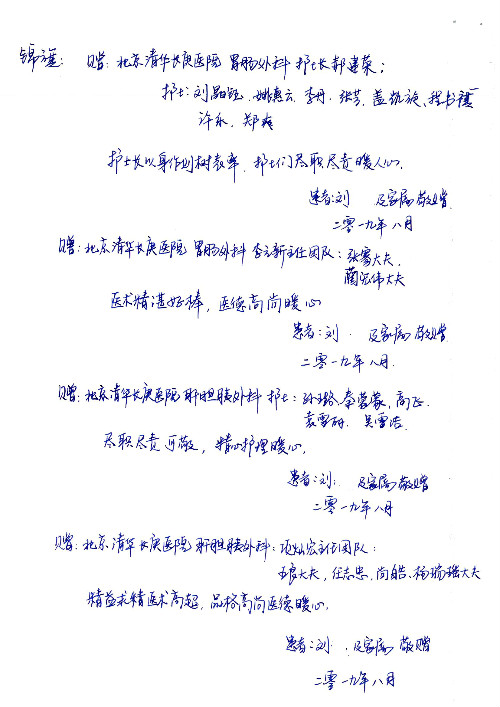 锦旗: 赠: 北京清华长庚医院 胃肠外科 护士长郝建荣;
护士: 刘晶钰、姚惠云、李丹、张芸、盖凯旋、程书禧
许永、郑爽
护士长以身作则树表率, 护士们尽职尽责暖人心.
患者:刘 及家属敬赠
二零一九年八月
赠: 北京清华长庚医院 胃肠外科 李元新主任团队: 张雾大夫、
蔺宏伟大夫
医术精湛好棒, 医德高尚暖心
患者:刘 及家属敬赠
二零一九年八月.
赠: 北京清华长庚医院 肝胆胰外科 护士: 孙璐 秦蓉蓉, 高正.
袁雪 吴雪浩.
尽职尽责可敬, 精心护理暖心.
患者:刘: 及家属敬赠
二零一九年八月
赠: 北京清华长庚医院 肝胆胰外科: 项灿宏主任团队:
大夫, 任志忠, 尚皓、杨瑞瑶大夫
精益求精医术高超, 品格高尚医德暖心.
患者:刘 及家属敬赠
二零一九年八月